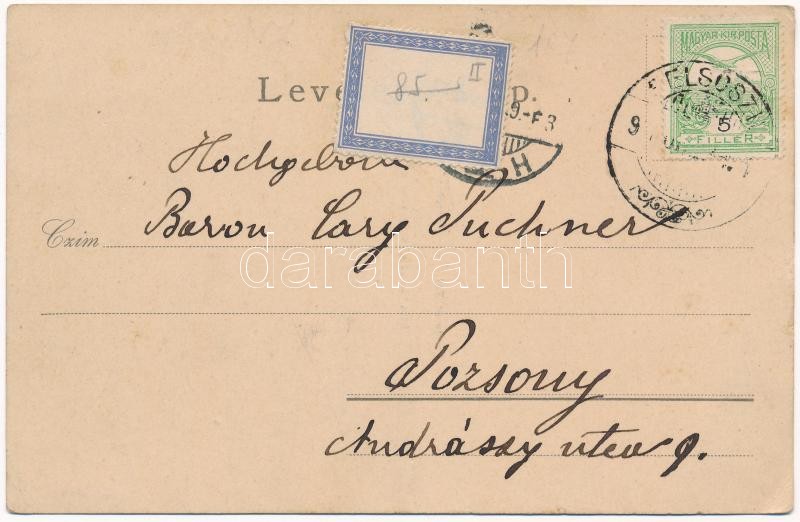 Leve p.
85. II
MAGYAR·KIR·POSTA
5
FILLÉR
FELSŐSZ
9.-F8
H
Hochgeborn
Czim Baron Cary Puchner
darabanth
Pozsony
Andrássy utca 9.